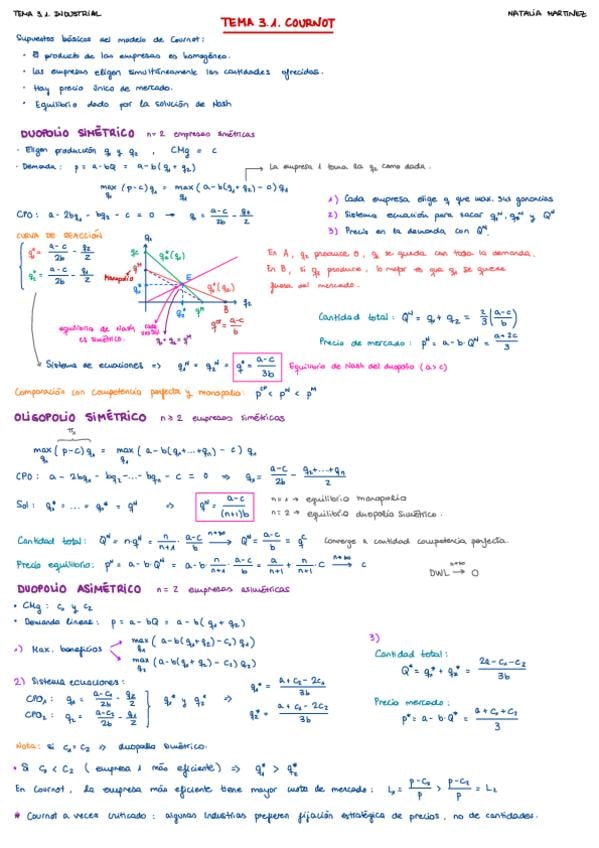 TEMA 3.1. INDUSTRIAL
NATALIA MARTINEZ
TEMA 3.1. COURNOT
Supuestos básicos del modelo de Cournot:
· El producto de las empresas es homogéneo.
· Las empresas eligen simultáneamente las cantidades ofrecidas.
· Hay precio único de mercado.
· Equilibrio dado por la solución de Nash
DUOPOLIO SIMÉTRICO n=2 empresas simétricas
· Eligen producción q₁ y q₂ , CMg = c
· Demanda: p = a-bQ = a-b(q₁+q₂) → La empresa 1 toma la q₂ como dada.
max (p-c)q₁ = max (a-b(q₁+q₂)-c)q₁
q₁ q₁
CPO: a-2bq₁-bq₂-c = 0 → q₁ = (a-c)/2b - q₂/2
1) Cada empresa elige q que max. sus ganancias
2) Sistema ecuación para sacar q₁ᴺ, q₂ᴺ y Qᴺ
3) Precio en la demanda con Qᴺ.
CURVA DE REACCIÓN
q₁* = (a-c)/2b - q₂/2
q₂* = (a-c)/2b - q₁/2
Monopolio
E
B
q₂
En A, q₂ produce 0, q₁ se queda con toda la demanda.
En B, si q₂ produce, lo mejor es que q₁ se quede
fuera del mercado.
equilibrio de Nash
es simétrico.
Cantidad total: Qᴺ = q₁+q₂ = 2/3((a-c)/b)
Precio de mercado: pᴺ = a-b·Qᴺ = (a+2c)/3
Sistema de ecuaciones => q₁ᴺ = q₂ᴺ = q* = (a-c)/3b Equilibrio de Nash del duopolio (a>c)
Comparación con competencia perfecta y monopolio: pᶜᴾ < pᴺ < pᴹ
OLIGOPOLIO SIMÉTRICO n≥2 empresas simétricas
max (p-c)q₁ = max (a-b(q₁+...+qₙ)-c)q₁
q₁ q₁
CPO: a-2bq₁-bq₂-...-bqₙ-c = 0 => q₁ = (a-c)/2b - (q₂+...+qₙ)/2
Sol: q₁* = ... = qₙ* = qᴺ => qᴺ = (a-c)/(n+1)b
n=1 → equilibrio monopolio
n=2 → equilibrio duopolio simétrico.
Cantidad total: Qᴺ = n·qᴺ = n/(n+1) · (a-c)/b n→∞ → Qᴺ = (a-c)/b = qᶜ Converge a cantidad competencia perfecta.
Precio equilibrio: pᴺ = a-b·Qᴺ = a-b· n/(n+1) · (a-c)/b = a/(n+1) + n/(n+1) · c n→∞ → c
DWL n→∞ → 0
DUOPOLIO ASIMÉTRICO n=2 empresas asimétricas
· CMg: c₁ y c₂
· Demanda lineal: p = a-bQ = a-b(q₁+q₂)
1) Max. beneficios
max (a-b(q₁+q₂)-c₁)q₁
q₁
max (a-b(q₁+q₂)-c₂)q₂
q₂
2) Sistema ecuaciones:
CPO₁: q₁ = (a-c₁)/2b - q₂/2
CPO₂: q₂ = (a-c₂)/2b - q₁/2
q₁* y q₂* =>
q₁* = (a+c₂-2c₁)/3b
q₂* = (a+c₁-2c₂)/3b
3)
Cantidad total:
Q* = q₁*+q₂* = (2a-c₁-c₂)/3b
Precio mercado:
p* = a-b·Q* = (a+c₁+c₂)/3
Nota: si c₁=c₂ => duopolio simétrico.
* Si c₁<c₂ (empresa 1 más eficiente) => q₁* > q₂*
En Cournot, la empresa más eficiente tiene mayor cuota de mercado: L₁ = (p-c₁)/p > (p-c₂)/p = L₂
* Cournot a veces criticado: algunas industrias prefieren fijación estratégica de precios, no de cantidades.